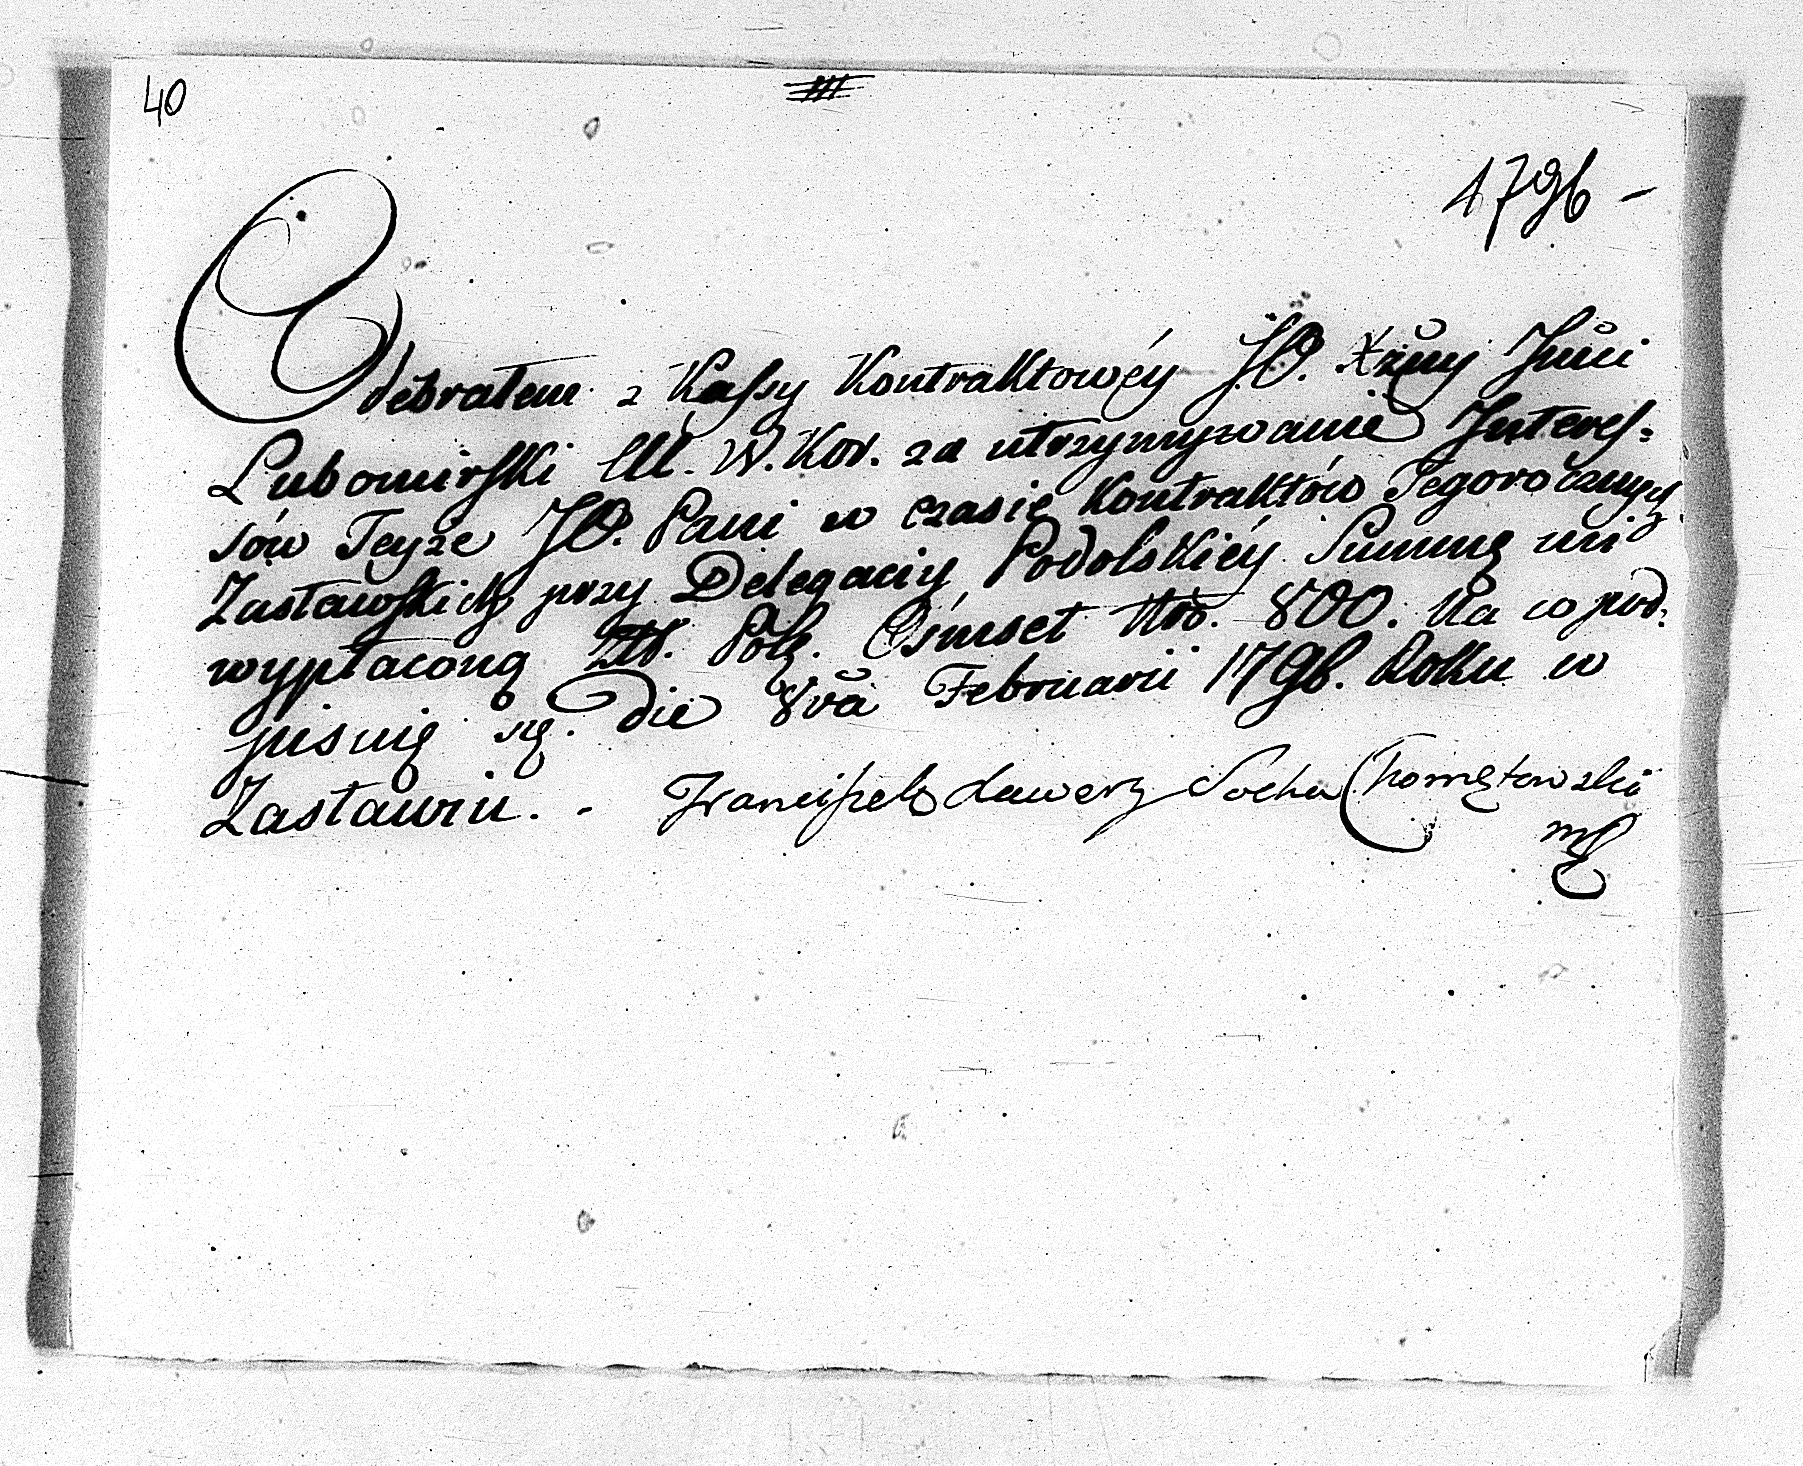 40
1796 -
Odebrałem z Kassy Kontraktowéy J.O. Xżny Jmci
Lubomirſki M. W. Kor. za utrzymywanie Intereſ=
sów Teyże JO. Pani w czasie Kontraktów Tegorocznych
Zasławſkich przy Delegacij Podolskiéy Summę mi
wypłaconą Złł. Pol. Ośmset Nro. 800. Na co pod.
pisuię się. Die 8va Februarii 1796. Roku w
Zasławiu. - Franciſzek Xawery Socha Chomętowski
mp